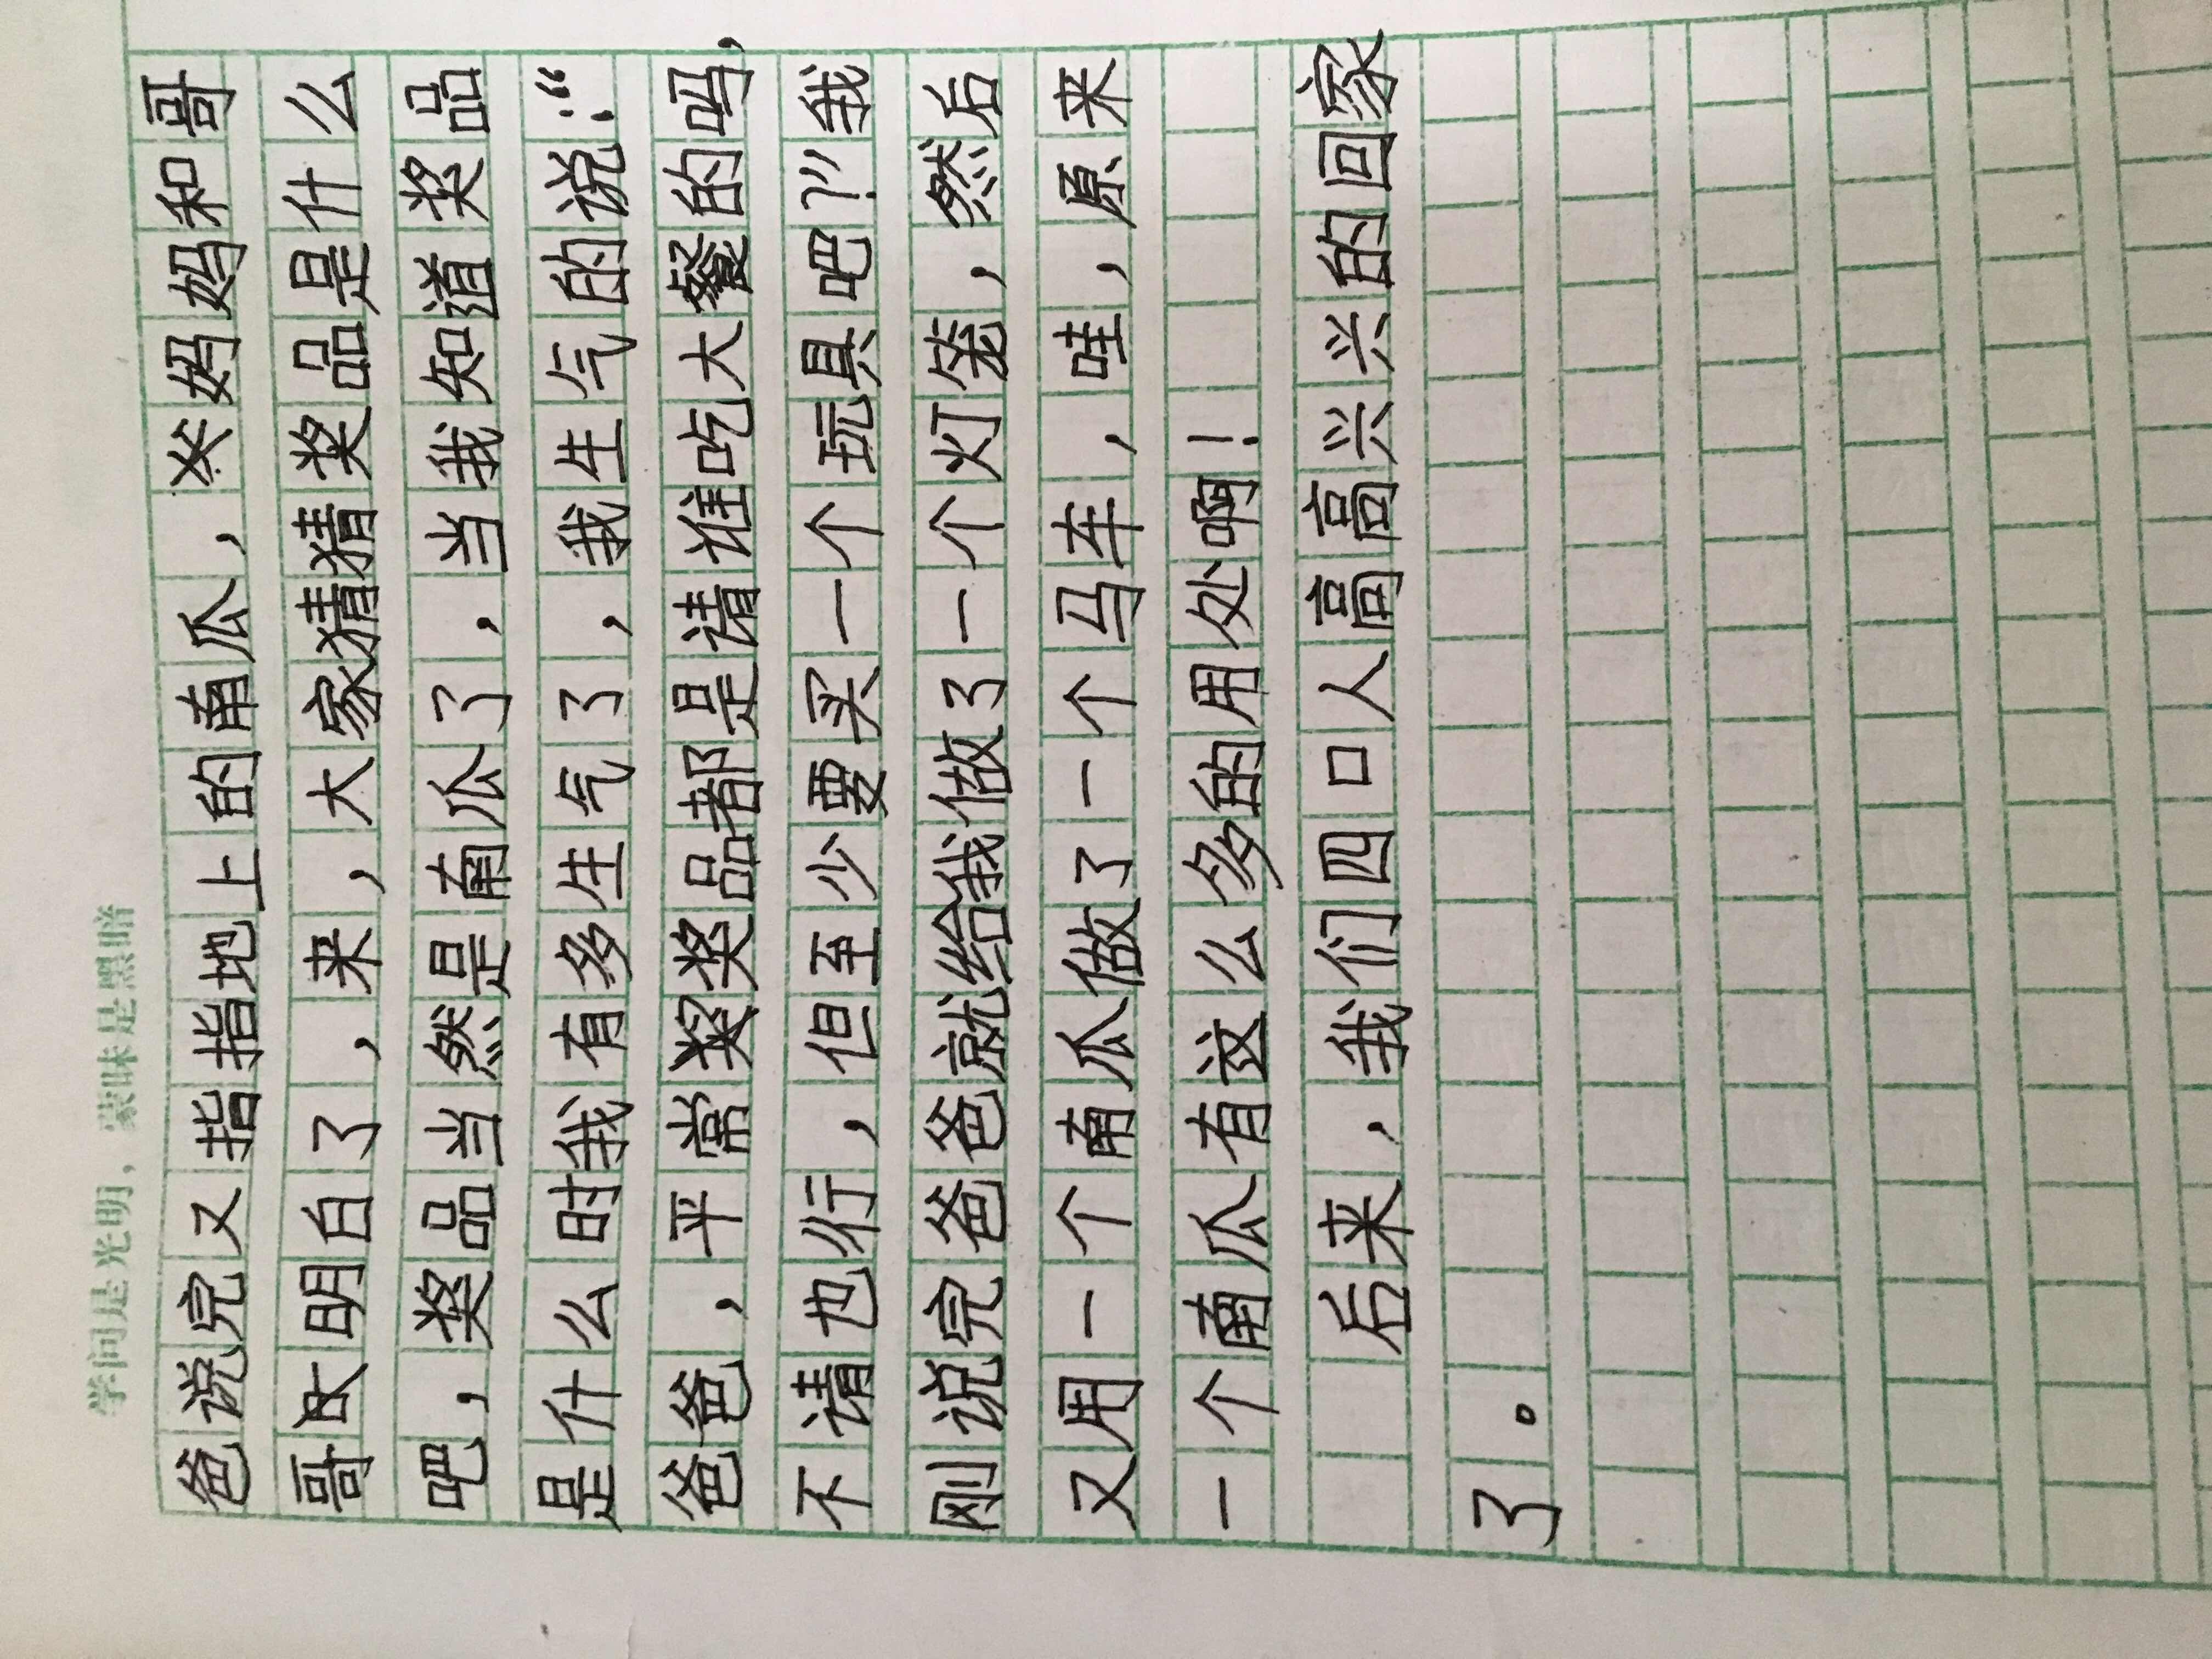 学问是光明，蒙昧是黑暗
爸说完又指指地上的南瓜，妈妈和哥
哥明白了，来，大家猜猜奖品是什么
吧，奖品当然是南瓜了，当我知道奖品
是什么时我有多生气了，我生气的说：“
爸爸，平常奖品都是请谁吃大餐的吗，
不请也行，但至少要买一个玩具吧？”我
刚说完爸爸就给我做了一个灯笼，然后
又用一个南瓜做了一个马车，哇，原来
一个南瓜有这么多的用处啊！
后来，我们四口人高高兴兴的回家
了。